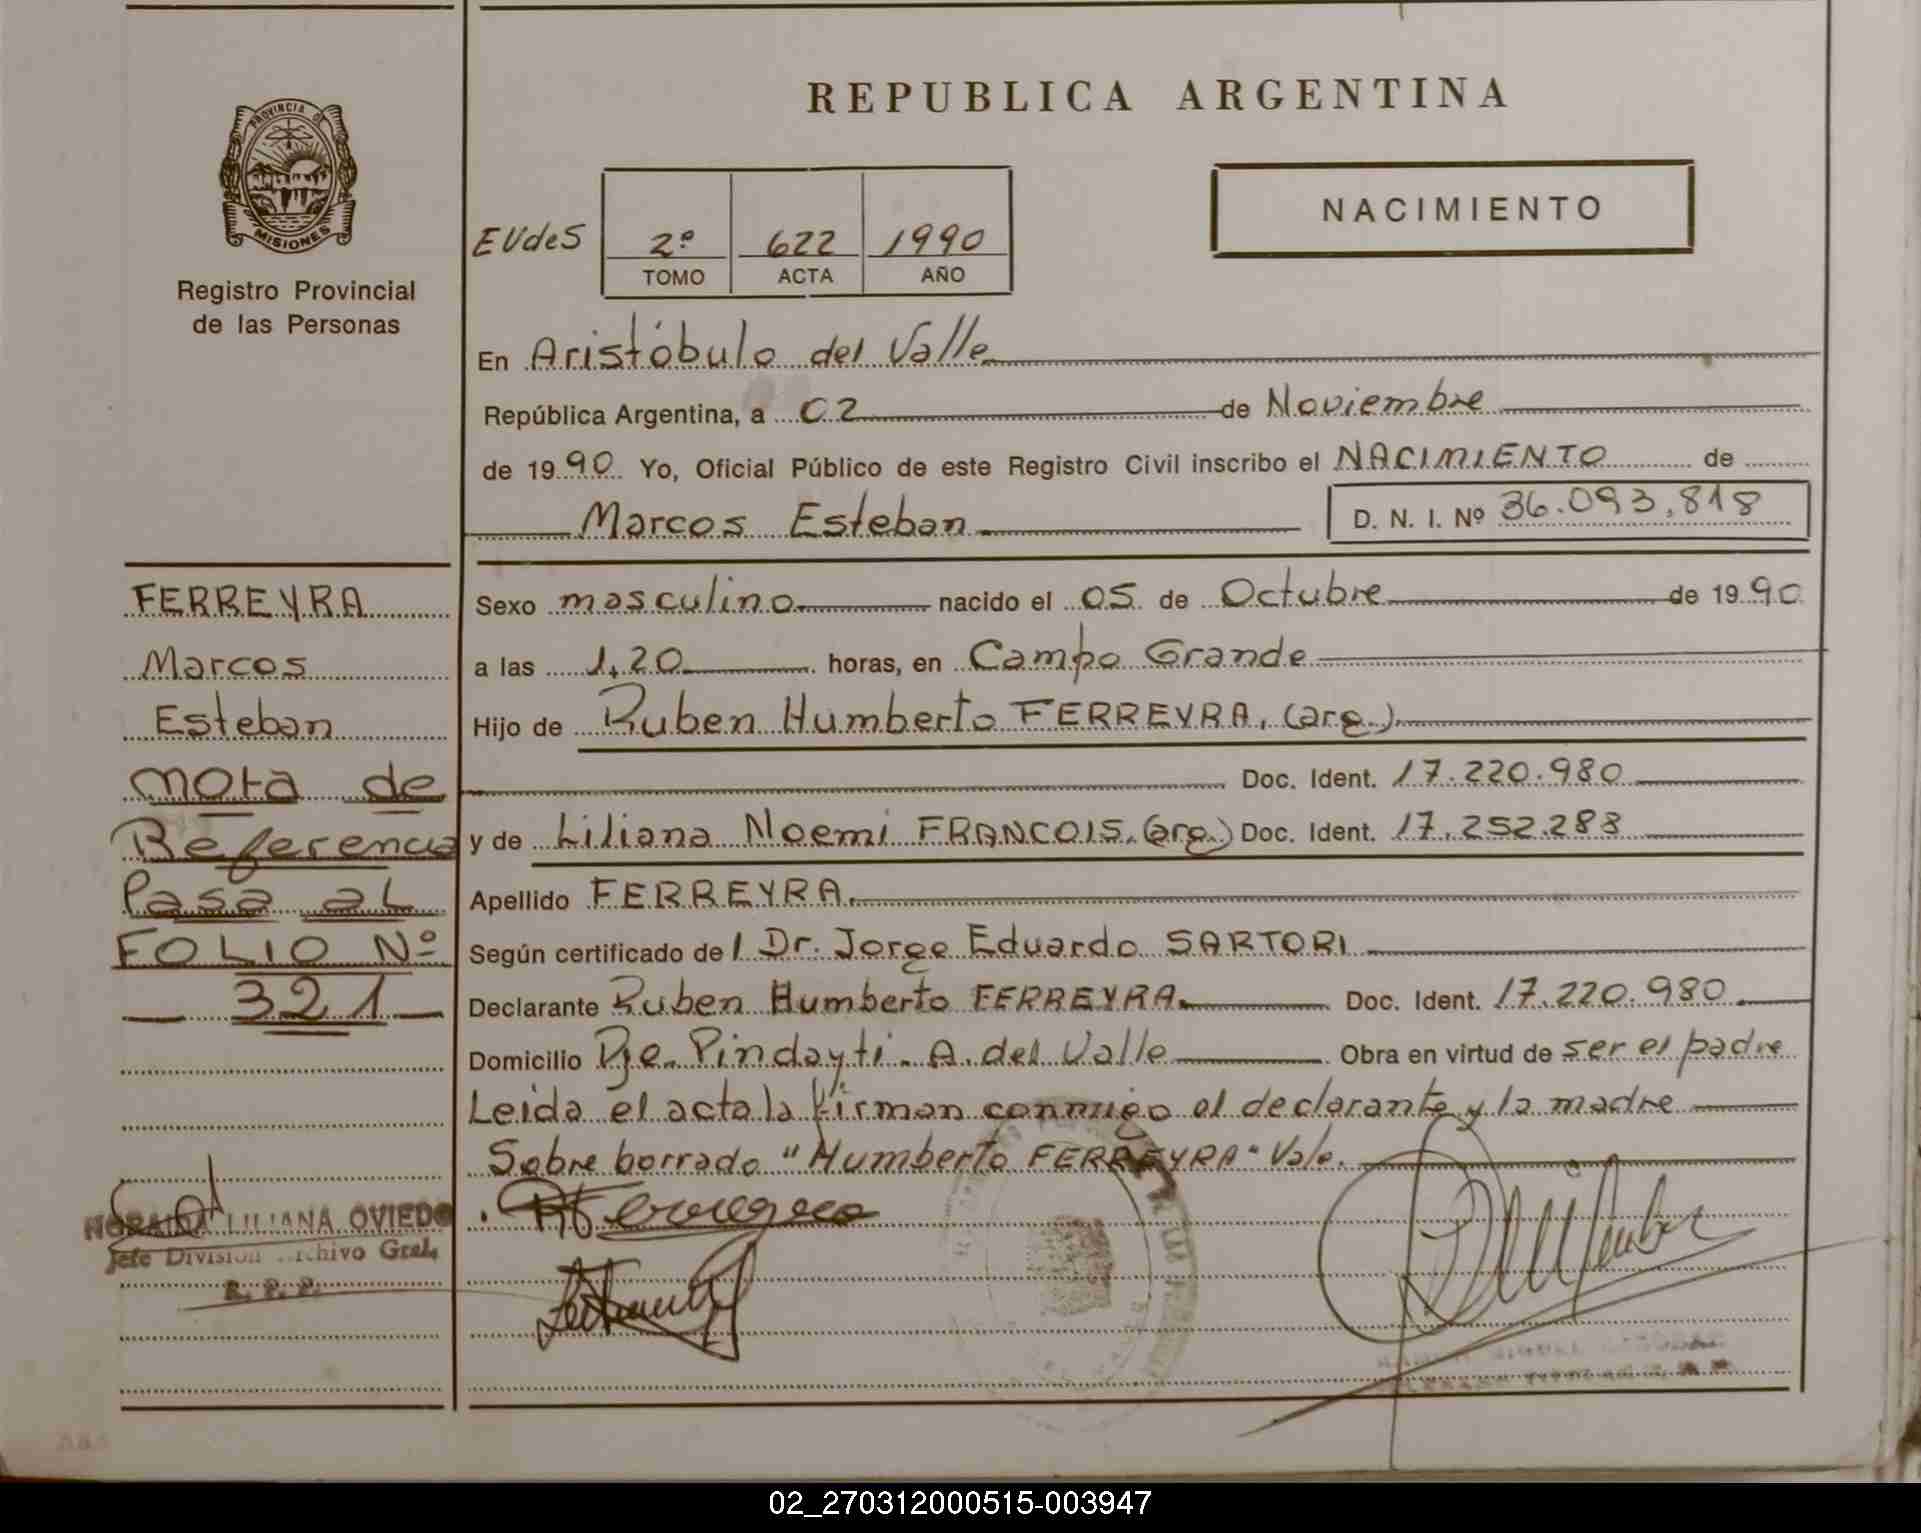 REPUBLICA ARGENTINA
PROVINCIA DE
MISIONES
Registro Provincial
de las Personas
NACIMIENTO
EVdeS 2º 622 1990
TOMO ACTA AÑO
En Aristóbulo del Valle
República Argentina, a 02 de Noviembre
de 1990 Yo, Oficial Público de este Registro Civil inscribo el NACIMIENTO de
Marcos Esteban D. N. I. Nº 36.093.818
Sexo masculino nacido el 05 de Octubre de 1990
a las 1,20 horas, en Campo Grande
Hijo de Ruben Humberto FERREYRA, (arg.)
Doc. Ident. 17.220.980
y de Liliana Noemi FRANCOIS. (arg.) Doc. Ident. 17.252.283
Apellido FERREYRA.
Según certificado de l Dr. Jorge Eduardo SARTORI
Declarante Ruben Humberto FERREYRA. Doc. Ident. 17.220.980
Domicilio Pje. Pindayti. A. del Valle Obra en virtud de ser el padre
Leida el acta la firman conmigo el declarante y la madre
Sobre borrado "Humberto FERREYRA" Vale.
FERREYRA
Marcos
Esteban
Nota de
Referencia
Pasa al
FOLIO Nº
321
LILIANA OVIEDO
Jefe División Archivo Gral.
R. P. P.
02_270312000515-003947